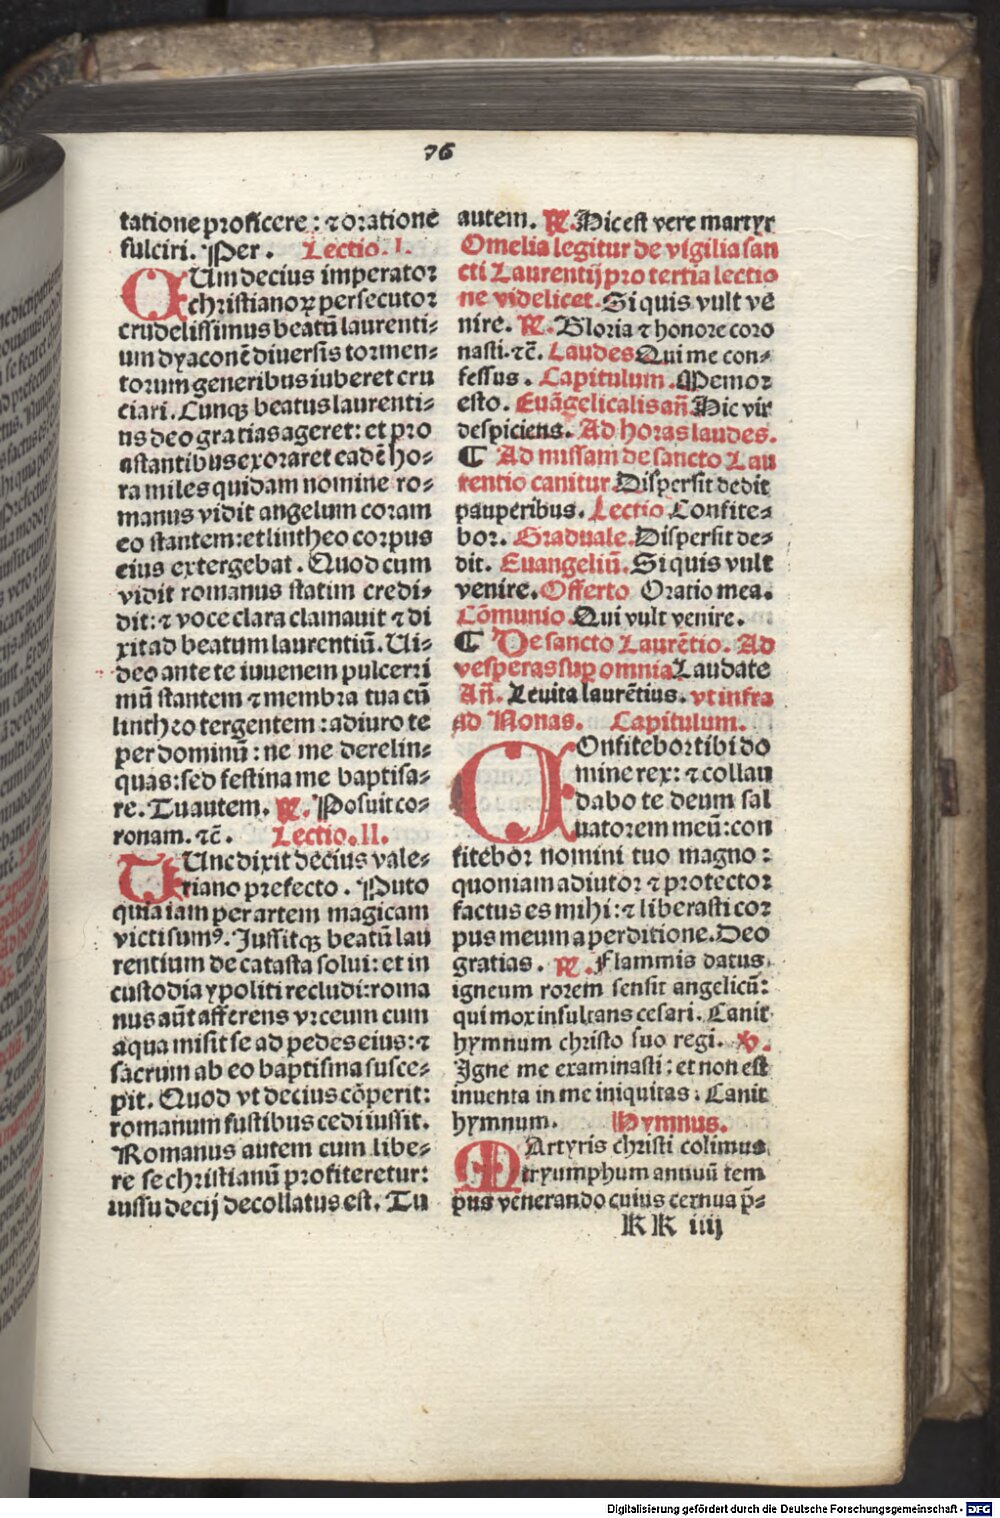 76
tatione proficere: ⁊ oratione
fulciri. Per. Lectio. I.
CUm decius imperator
christianoꝝ persecutor
crudelissimus beatū laurenti⸗
um dyaconē diuersis tormen⸗
torum generibus iuberet cru
ciari. Cunqꝫ beatus laurenti⸗
us deo gratias ageret: et pro
astantibus exoraret eadē ho⸗
ra miles quidam nomine ro⸗
manus vidit angelum coram
eo stantem: et lintheo corpus
eius extergebat. Quod cum
vidit romanus statim credi⸗
dit: ⁊ voce clara clamauit ⁊ di
xit ad beatum laurentiū. Ui⸗
deo ante te iuuenem pulcerri
mū stantem ⁊ membra tua cū
lintheo tergentem: adiuro te
per dominū: ne me derelin⸗
quas: sed festina me baptisa⸗
re. Tu autem. ℟. Posuit co⸗
ronam. ⁊c̄. Lectio. II.
TUnc dixit decius vale⸗
riano prefecto. Puto
quia iam per artem magicam
victi sumꝰ. Jussitqꝫ beatū lau
rentium de catasta solui: et in
custodia ypoliti recludi: roma
nus aūt afferens vrceum cum
aqua misit se ad pedes eius: ⁊
sacrum ab eo baptisma susce⸗
pit. Quod vt decius cōperit:
romanum fustibus cedi iussit.
Romanus autem cum libe⸗
re se christianū profiteretur:
iussu decij decollatus est. Tu
autem. ℟. Hic est vere martyr
Omelia legitur de vigilia san
cti Laurentij pro tertia lectio
ne videlicet. Si quis vult ve
nire. ℟. Gloria ⁊ honore coro
nasti. ⁊c̄. Laudes Qui me con⸗
fessus. Capitulum. Memor
esto. Euāgelicalis añ Hic vir
despiciens. Ad horas laudes.
¶ Ad missam de sancto Lau
rentio canitur Dispersit dedit
pauperibus. Lectio Confite⸗
bor. Graduale. Dispersit de⸗
dit. Euangeliū. Si quis vult
venire. Offerto Oratio mea.
Cōmunio. Qui vult venire.
¶ De sancto Laurētio. Ad
vesperas sup omnia Laudate
Añ. Leuita laurētius. vt infra
ad Nonas. Capitulum.
COnfitebor tibi do
mine rex: ⁊ collau
dabo te deum sal
uatorem meū: con
fitebor nomini tuo magno:
quoniam adiutor ⁊ protector
factus es mihi: ⁊ liberasti cor
pus meum a perditione. Deo
gratias. ℟. Flammis datus
igneum rorem sensit angelicū:
qui mox insultans cesari. Canit
hymnum christo suo regi. ℣.
Igne me examinasti: et non est
inuenta in me iniquitas. Canit
hymnum. Hymnus.
MArtyris christi colimus
tryumphum annuū tem
pus venerando cuius cernua p̄⸗
KK iiij
Digitalisierung gefördert durch die Deutsche Forschungsgemeinschaft - DFG